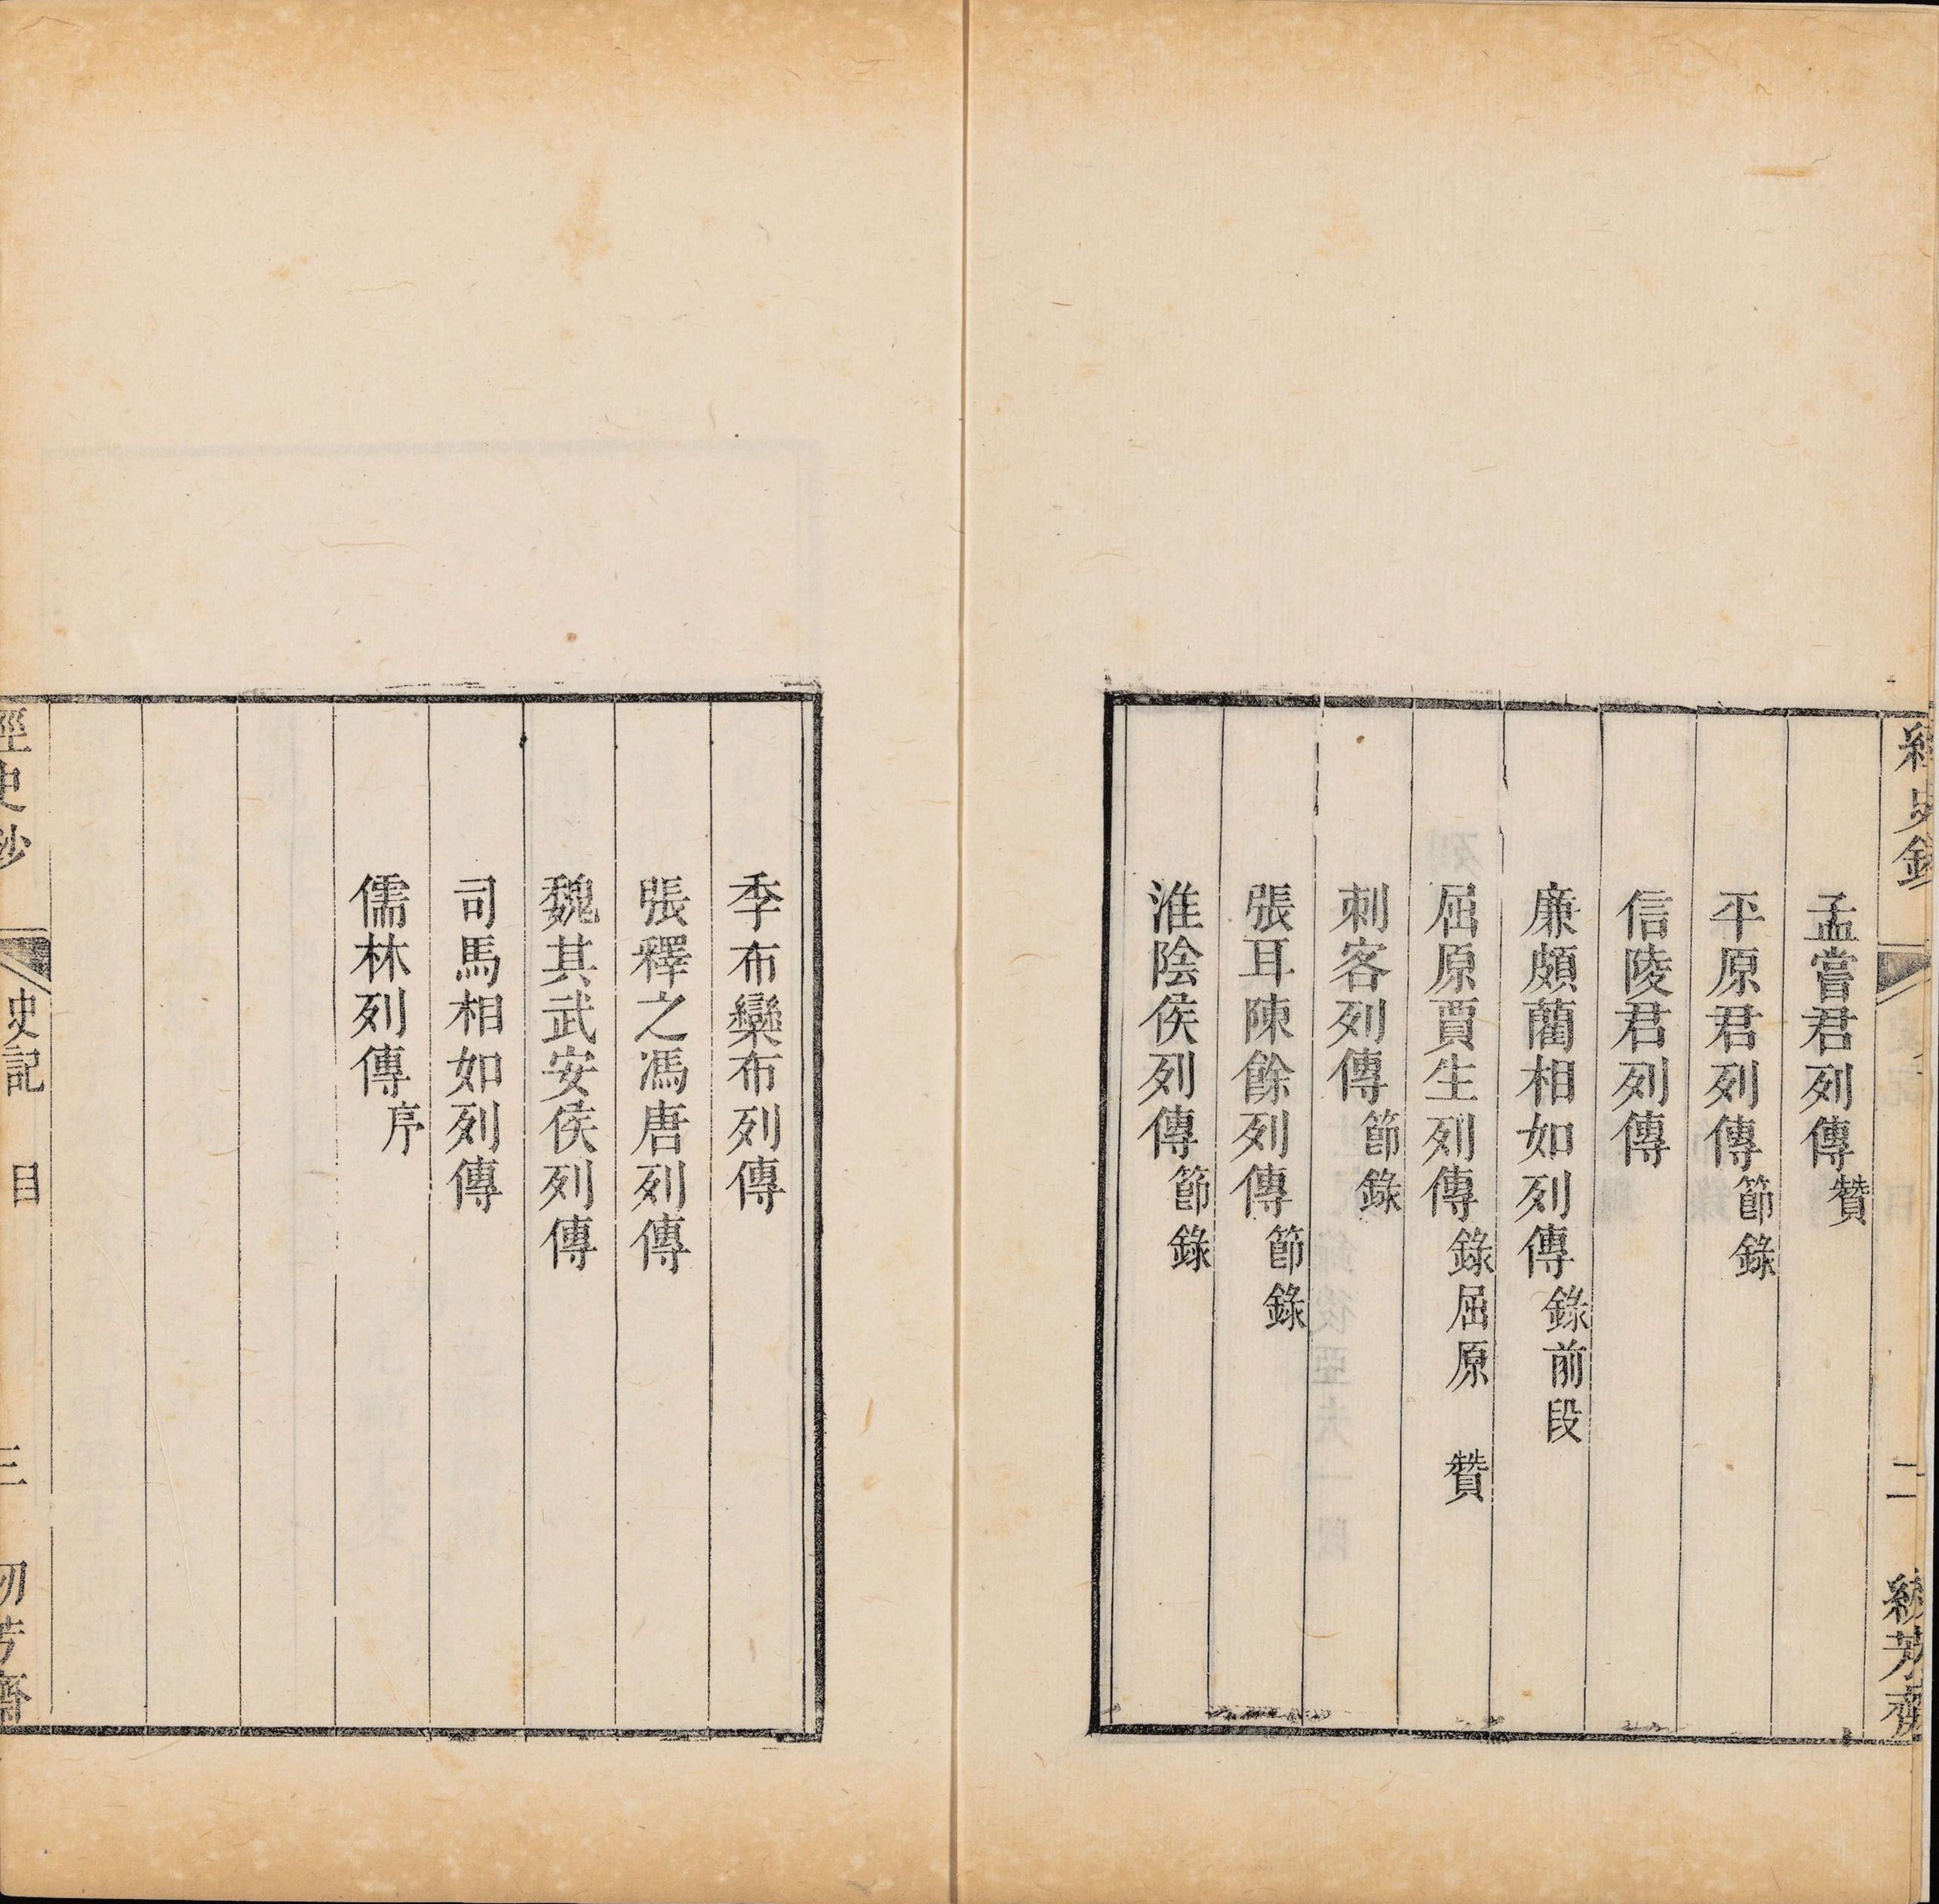 孟嘗君列傳贊
平原君列傳節錄
信陵君列傳
廉頗藺相如列傳錄前段
屈原賈生列傳錄屈原 贊
刺客列傳節錄
張耳陳餘列傳節錄
淮陰侯列傳節錄
季布欒布列傳
張釋之馮唐列傳
魏其武安侯列傳
司馬相如列傳
儒林列傳序
經史鈔 史記 目 三 芳齋